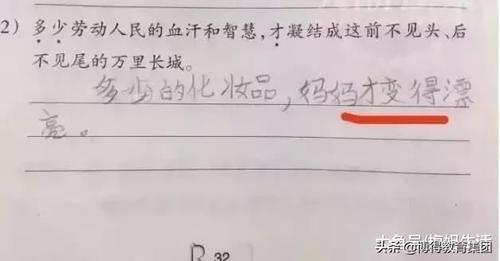 2）多少劳动人民的血汗和智慧，才凝结成这前不见头、后
不见尾的万里长城。
多少的化妆品，妈妈才变得漂
亮。
R 32
头条 @博得教育集团